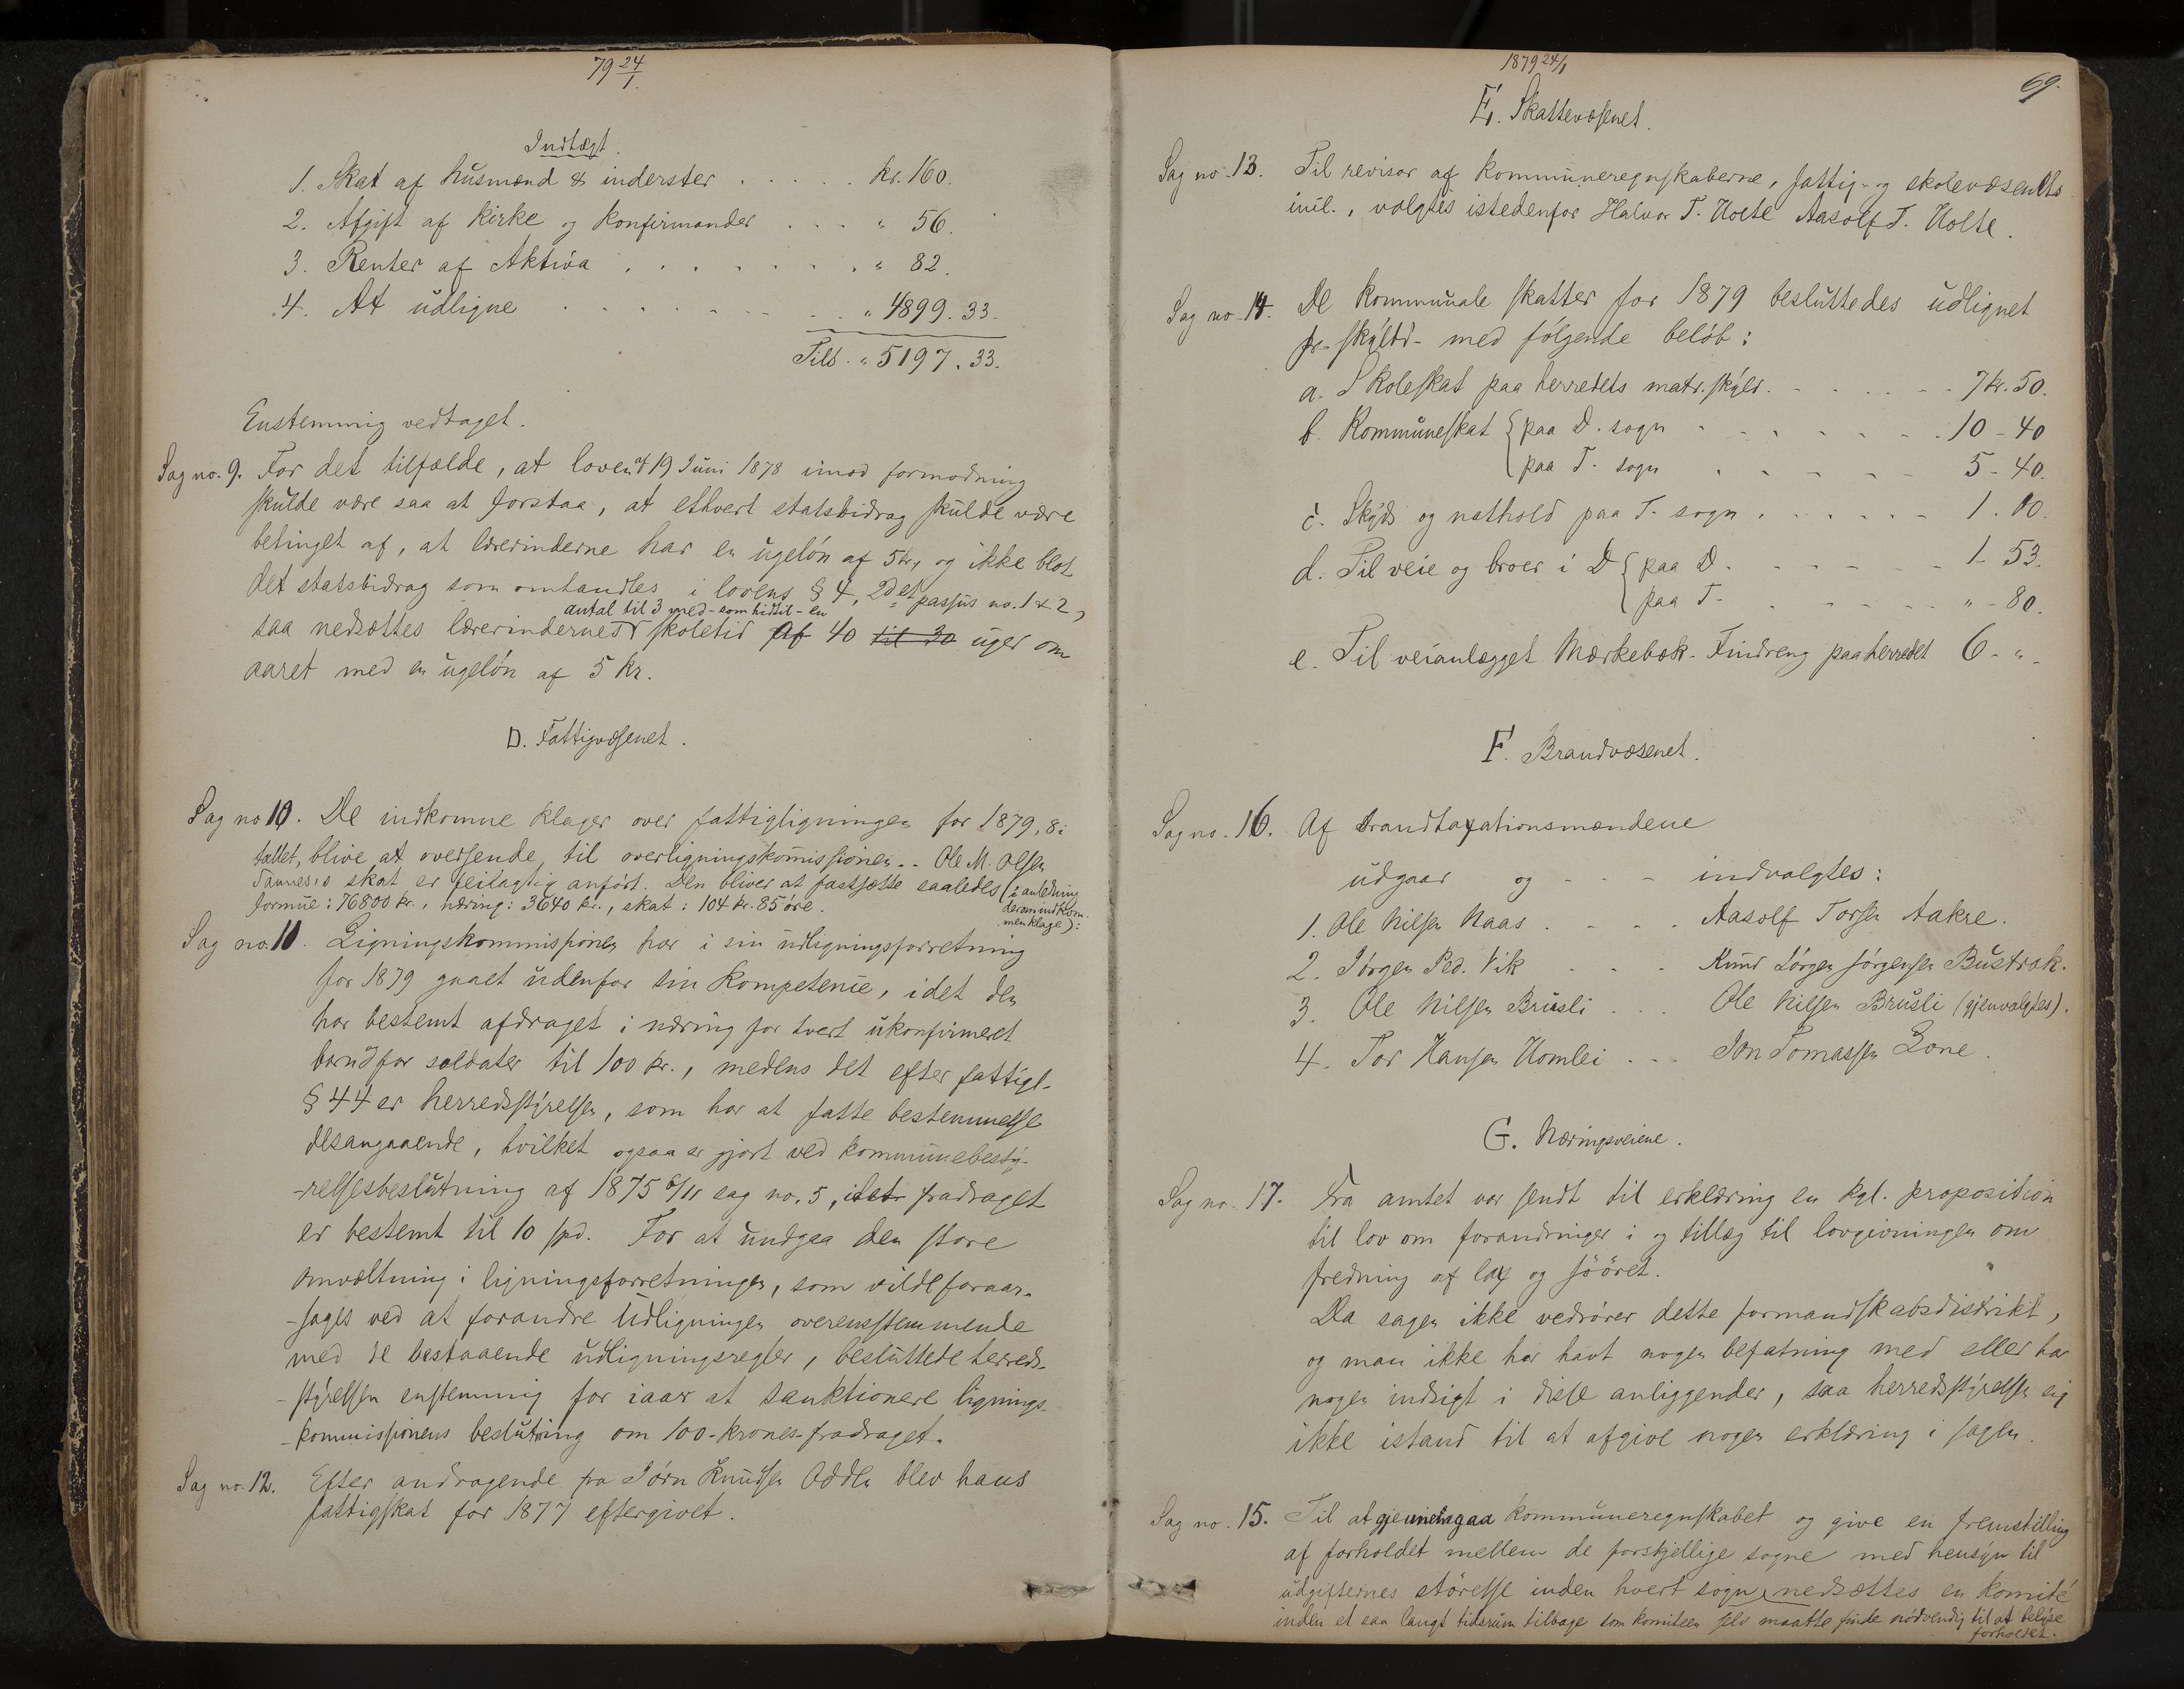 79 24/1.
Indtægt.
1. Skat af husmænd & inderster . . . . . kr. 160.
2. Afgift af kirke og konfirmander . . . " 56.
3. Renter af Aktiva . . . . . . . . " 82.
4. At udligne . . . . . . . . " 4899. 33.
Tils. " 5197. 33.
Enstemmig vedtaget.
Sag no. 9. For det tilfælde, at loven af 19 Juni 1878 imod formodning
skulde være saa at forstaa, at ethvert statsbidrag skulde være
betinget af, at lærerinderne har en ugeløn af 5 kr, og ikke blot
det statsbidrag som omhandles i lovens § 4, 2det passus no. 1 & 2,
antal til 3 med - som hidtil - en
saa nedsættes lærerindernes skoletid af 40 til 30 uger om
aaret med en ugeløn af 5 kr.
D. Fattigvæsenet.
Sag no 10. De indkomne klager over fattigligningen for 1879, 8 i
tallet, blive at oversende til overligningskommissionen. - Ole M. Olsen
Tannes's skat er feilagtig anført. Den bliver at fastsætte saaledes (i anledning
formue: 76800 kr., næring: 3640 kr., skat: 104 kr. 85 øre. derom indkom-
men klage):
Sag no. 11. Ligningskommissionen har i sin udligningsforretning
for 1879 gaaet udenfor sin kompetense, idet den
har bestemt afdraget i næring for hvert ukonfirmeret
barn & for soldater til 100 kr., medens det efter fattigl.
§ 44 er herredsstyrelsen, som har at fatte bestemmelse
desangaaende, hvilket ogsaa er gjort ved kommunebesty-
-relsesbeslutning af 1875 6/11 sag no. 5, idet fradraget
er bestemt til 10 spd. For at undgaa den store
omvæltning i ligningsforretningen, som vilde foraar-
-sages ved at forandre udligningen overensstemmende
med de bestaaende udligningsregler, besluttede herreds-
-styrelsen enstemmig for iaar at sanktionere lignings-
-kommissionens beslutning om 100-krones-fradraget.
Sag no. 12. Efter andragende fra Jørn Knudsen Odden blev hans
fattigskat for 1877 eftergivet.
1879 24/1
69.
E. Skattevæsenet.
Sag no. 13. Til revisor af kommuneregnskaberne, fattig- og skolevæsenets
inkl., valgtes istedenfor Halvor T. Holte Aasolf T. Holte.
Sag no. 14. De kommunale skatter for 1879 besluttedes udlignet
pr. skyldd. med følgende beløb:
a. Skoleskat paa herredets matr. skyld. . . . . . 7 kr. 50.
b. Kommuneskat { paa D. sogn . . . . . . . 10 - 40
paa T. sogn . . . . . . 5 - 40.
c. Skyds og nathold paa T. sogn . . . . . . 1. 00.
d. Til veie og broer i D { paa D. . . . . . . 1 53.
paa T. . . . . . . " - 80.
e. Til veianlægget Mærkebæk - Findreng paa herredet 6 - " -
F. Brandvæsenet.
Sag no. 16. Af brandtaxationsmændene
udgaar og - - - indvalgtes:
1. Ole Nilsen Naas . . . . Aasolf Torsen Aakre.
2. Jørgen Ped. Vik . . . Knud Jørgen Jørgensen Bustrak.
3. Ole Nilsen Brusli . . . Ole Nilsen Brusli (gjenvalgtes).
4. Tor Hansen Homlei . . . Jon Tomassen Lone.
G. Næringsveiene.
Sag no. 17. Fra amtet var sendt til erklæring en kgl. proposition
til lov om forandringer i og tillæg til lovgivningen om
fredning af lax og søøret.
Da sagen ikke vedrører dette formandskabsdistrikt,
og man ikke har havt nogen befatning med eller har
nogen indsigt i disse anliggender, saa herredsstyrelsen sig
ikke istand til at afgive nogen erklæring i sagen.
Sag no. 15. Til at gjennemgaa kommuneregnskabet og give en fremstilling
af forholdet mellem de forskjellige sogne med hensyn til
udgifternes størelse inden hvert sogn, nedsættes en komité
inden et saa langt tidsrum tilbage som komiteen selv maatte finde nødvendig til at belyse
forholdet.